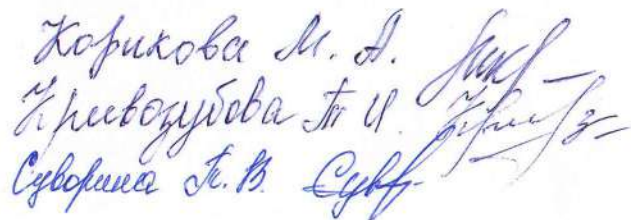 Корикова М. А.
Кривозубова Т И.
Суворина Т. В. Сув